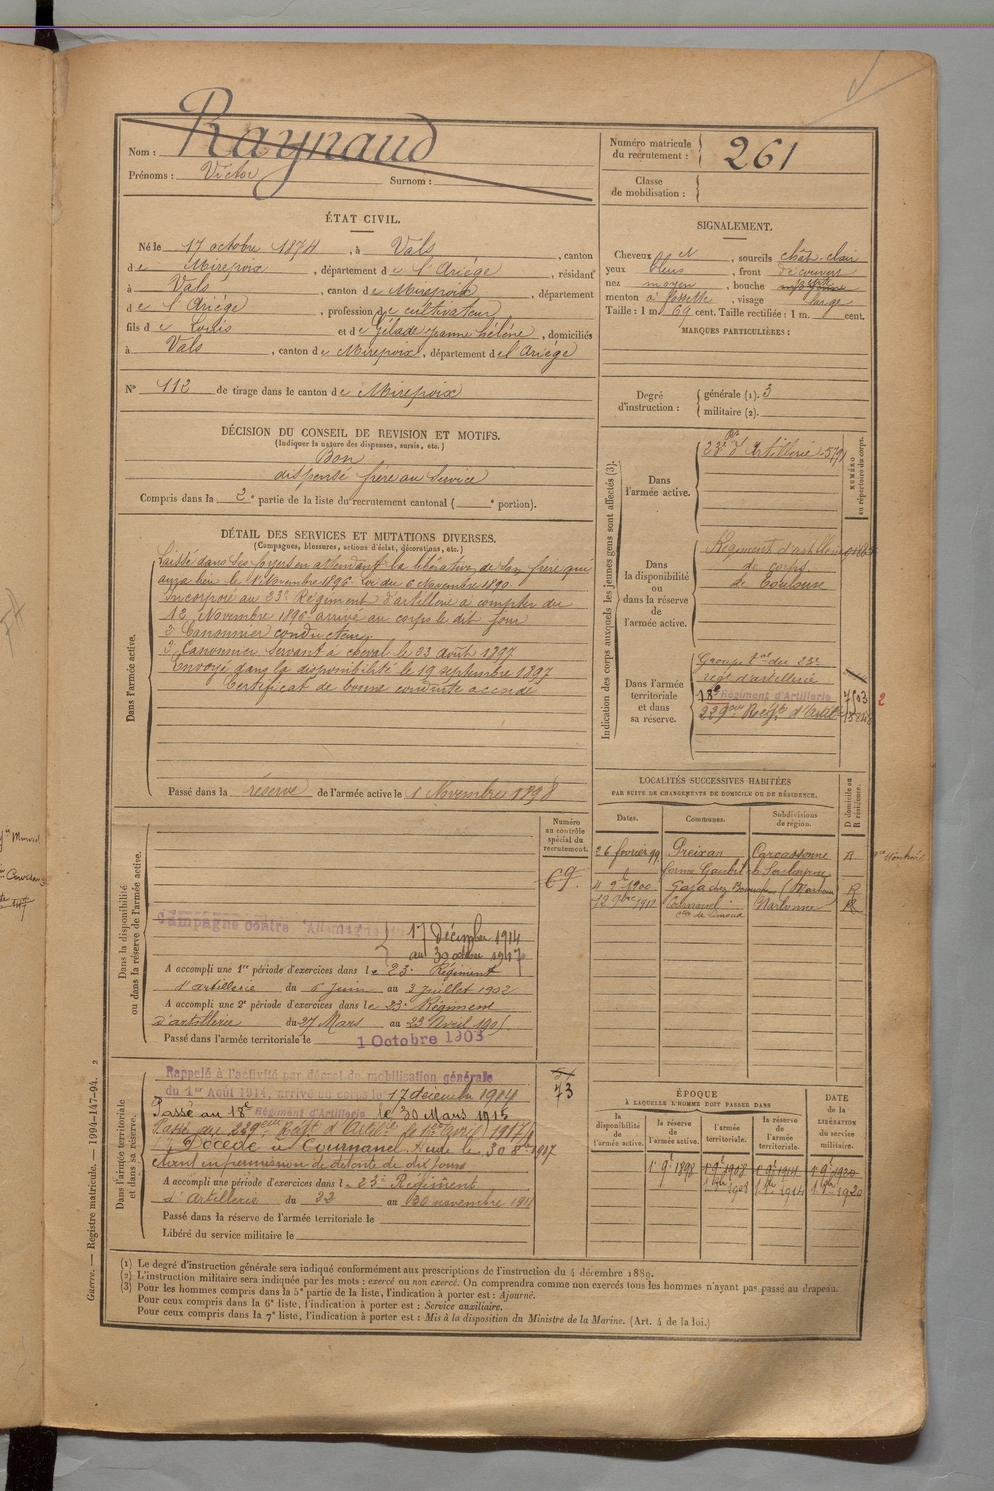 Nom : Raynaud
Prénoms : Victor Surnom :
Numéro matricule du recrutement : 261
Classe de mobilisation :
ÉTAT CIVIL.
Né le 17 octobre 1874, à Vals, canton
de Mirepoix, département de l'Ariège, résidant
à Vals, canton de Mirepoix, département
de l'Ariège, profession de cultivateur
fils de Louis et de Gélade Jeanne Hélène, domiciliés
à Vals, canton de Mirepoix, département de l'Ariège
N° 112 de tirage dans le canton de Mirepoix
SIGNALEMENT.
Cheveux et, sourcils chât. clair
yeux bleus, front découvert
nez moyen, bouche
menton à fossette, visage large
Taille : 1 m. 69 cent. Taille rectifiée : 1 m. cent.
MARQUES PARTICULIÈRES :
Degré d'instruction : générale (1). 3
militaire (2).
DÉCISION DU CONSEIL DE REVISION ET MOTIFS.
(Indiquer la nature des dispenses, sursis, etc.)
Bon
dispensé frère au service
Compris dans la 2e partie de la liste du recrutement cantonal ( e portion).
DÉTAIL DES SERVICES ET MUTATIONS DIVERSES.
(Campagnes, blessures, actions d'éclat, décorations, etc.)
Dans l'armée active.
Laissé dans ses foyers en attendant la libération de son frère qui
aura lieu le 1er Novembre 1896. Loi du 6 Novembre 1890.
Incorporé au 23e Régiment d'artillerie à compter du
12 Novembre 1896 arrivé au corps le dit jour
2e Canonnier conducteur,
2e Canonnier servant à cheval le 23 août 1897
Envoyé dans la disponibilité le 19 septembre 1897
Certificat de bonne conduite accordé
Passé dans la réserve de l'armée active le 1 Novembre 1898
Numéro au contrôle spécial du recrutement.
Dans la disponibilité ou dans la réserve de l'armée active.
69.
Campagne contre l'Allemagne du 17 Décembre 1914
au 30 octobre 1917
A accompli une 1re période d'exercices dans le 23e Régiment
d'artillerie du 6 Juin au 3 juillet 1902
A accompli une 2e période d'exercices dans le 23e Régiment
d'artillerie du 27 Mars au 23 Avril 1905.
Passé dans l'armée territoriale le 1 Octobre 1903
Dans l'armée territoriale et dans sa réserve.
Rappelé à l'activité par décret de mobilisation générale
du 1er Août 1914, arrivé au corps le 17 décembre 1914
73
Passé au 18e Régiment d'Artillerie le 30 Mars 1915
Passé au 229ème Régt d'Artie le 1er avril 1917
Décédé à Cournanel Aude le 30 8bre 1917
étant en permission de détente de dix jours
A accompli une période d'exercices dans le 23e Régiment
d'Artillerie du 22 au 30 novembre 1911
Passé dans la réserve de l'armée territoriale le
Libéré du service militaire le
Indication des corps auxquels les jeunes gens sont affectés (3).
NUMÉRO au répertoire du corps.
Dans l'armée active.
23e d'Artillerie
Dans la disponibilité ou dans la réserve de l'armée active.
Régiment d'artillerie
de corps
de Toulouse
Dans l'armée territoriale et dans sa réserve.
Groupe territorial du 23e
régt d'artillerie
18e Régiment d'Artillerie
229ème Régt d'Artie
2
LOCALITÉS SUCCESSIVES HABITÉES
PAR SUITE DE CHANGEMENTS DE DOMICILE OU DE RÉSIDENCE.
Dates. Communes. Subdivisions de région. D domicile ou R résidence.
26 février 99 Preixan Carcassonne R
4 9bre 1900 Gaja R
1911 Cournanel Narbonne R
cton de Limoux
ÉPOQUE
À LAQUELLE L'HOMME DOIT PASSER DANS
la disponibilité de l'armée active. la réserve de l'armée active. l'armée territoriale. la réserve de l'armée territoriale. DATE de la LIBÉRATION du service militaire.
1er 9bre 1898 1er 9bre 1908 1er 9bre 1914 1er 9bre 1920
1er 8bre 1914 1er 8bre 1920
(1) Le degré d'instruction générale sera indiqué conformément aux prescriptions de l'instruction du 4 décembre 1889.
(2) L'instruction militaire sera indiquée par les mots : exercé ou non exercé. On comprendra comme non exercés tous les hommes n'ayant pas passé au drapeau.
(3) Pour les hommes compris dans la 5e partie de la liste, l'indication à porter est : Ajourné.
Pour ceux compris dans la 6e liste, l'indication à porter est : Service auxiliaire.
Pour ceux compris dans la 7e liste, l'indication à porter est : Mis à la disposition du Ministre de la Marine. (Art. 4 de la loi.)
Guerre. — Registre matricule. — 1994-147-94. 2